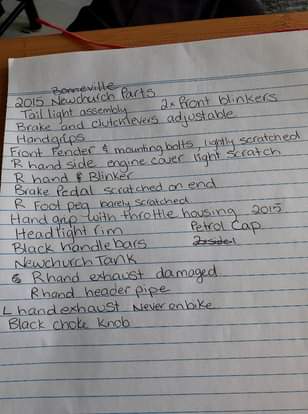 Bonneville
2015 Newchurch Parts
Tail light assembly 2x Front blinkers
Brake and clutch levers adjustable
Handgrips
Front Fender & mounting bolts, lightly scratched
R hand side engine cover light scratch
R hand F Blinker
Brake Pedal scratched on end
R Foot peg barely scratched
Hand grip with throttle housing 2015
Headlight rim Petrol Cap
Black handlebars
Newchurch Tank
R hand exhaust damaged
R hand header pipe
L hand exhaust Never on bike
Black choke knob